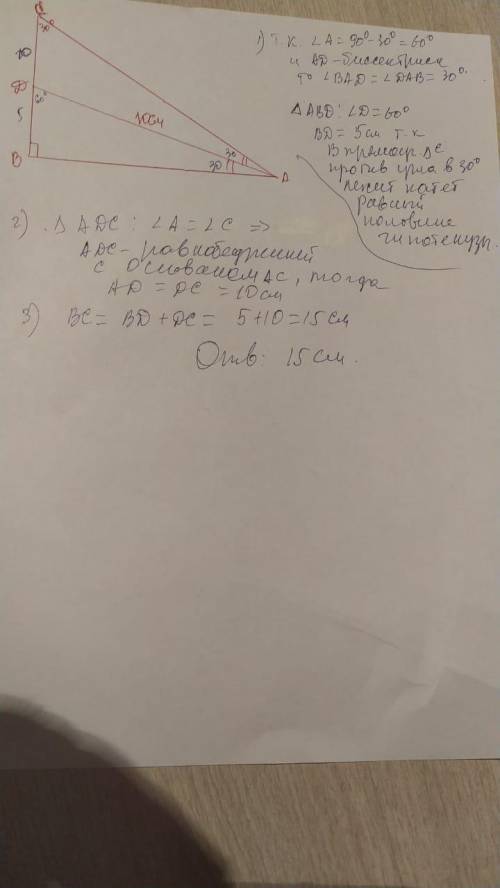 C
30°
10
D
60°
5
10см
B
30
30
A
1) Т.к. ∠A = 90°-30° = 60°
и AD - биссектриса
то ∠BAD = ∠DAB = 30°.
△ABD: ∠D = 60°
BD = 5см т.к
В прямоуг. △С
против угла в 30°
лежит катет
равный
половине
гипотенузы.
2). △ADC: ∠A = ∠C =>
ADC - равнобедренний
с основаном AC, тогда
AD = DC = 10см
3) BC = BD + DC = 5+10 = 15см
Отв: 15см.